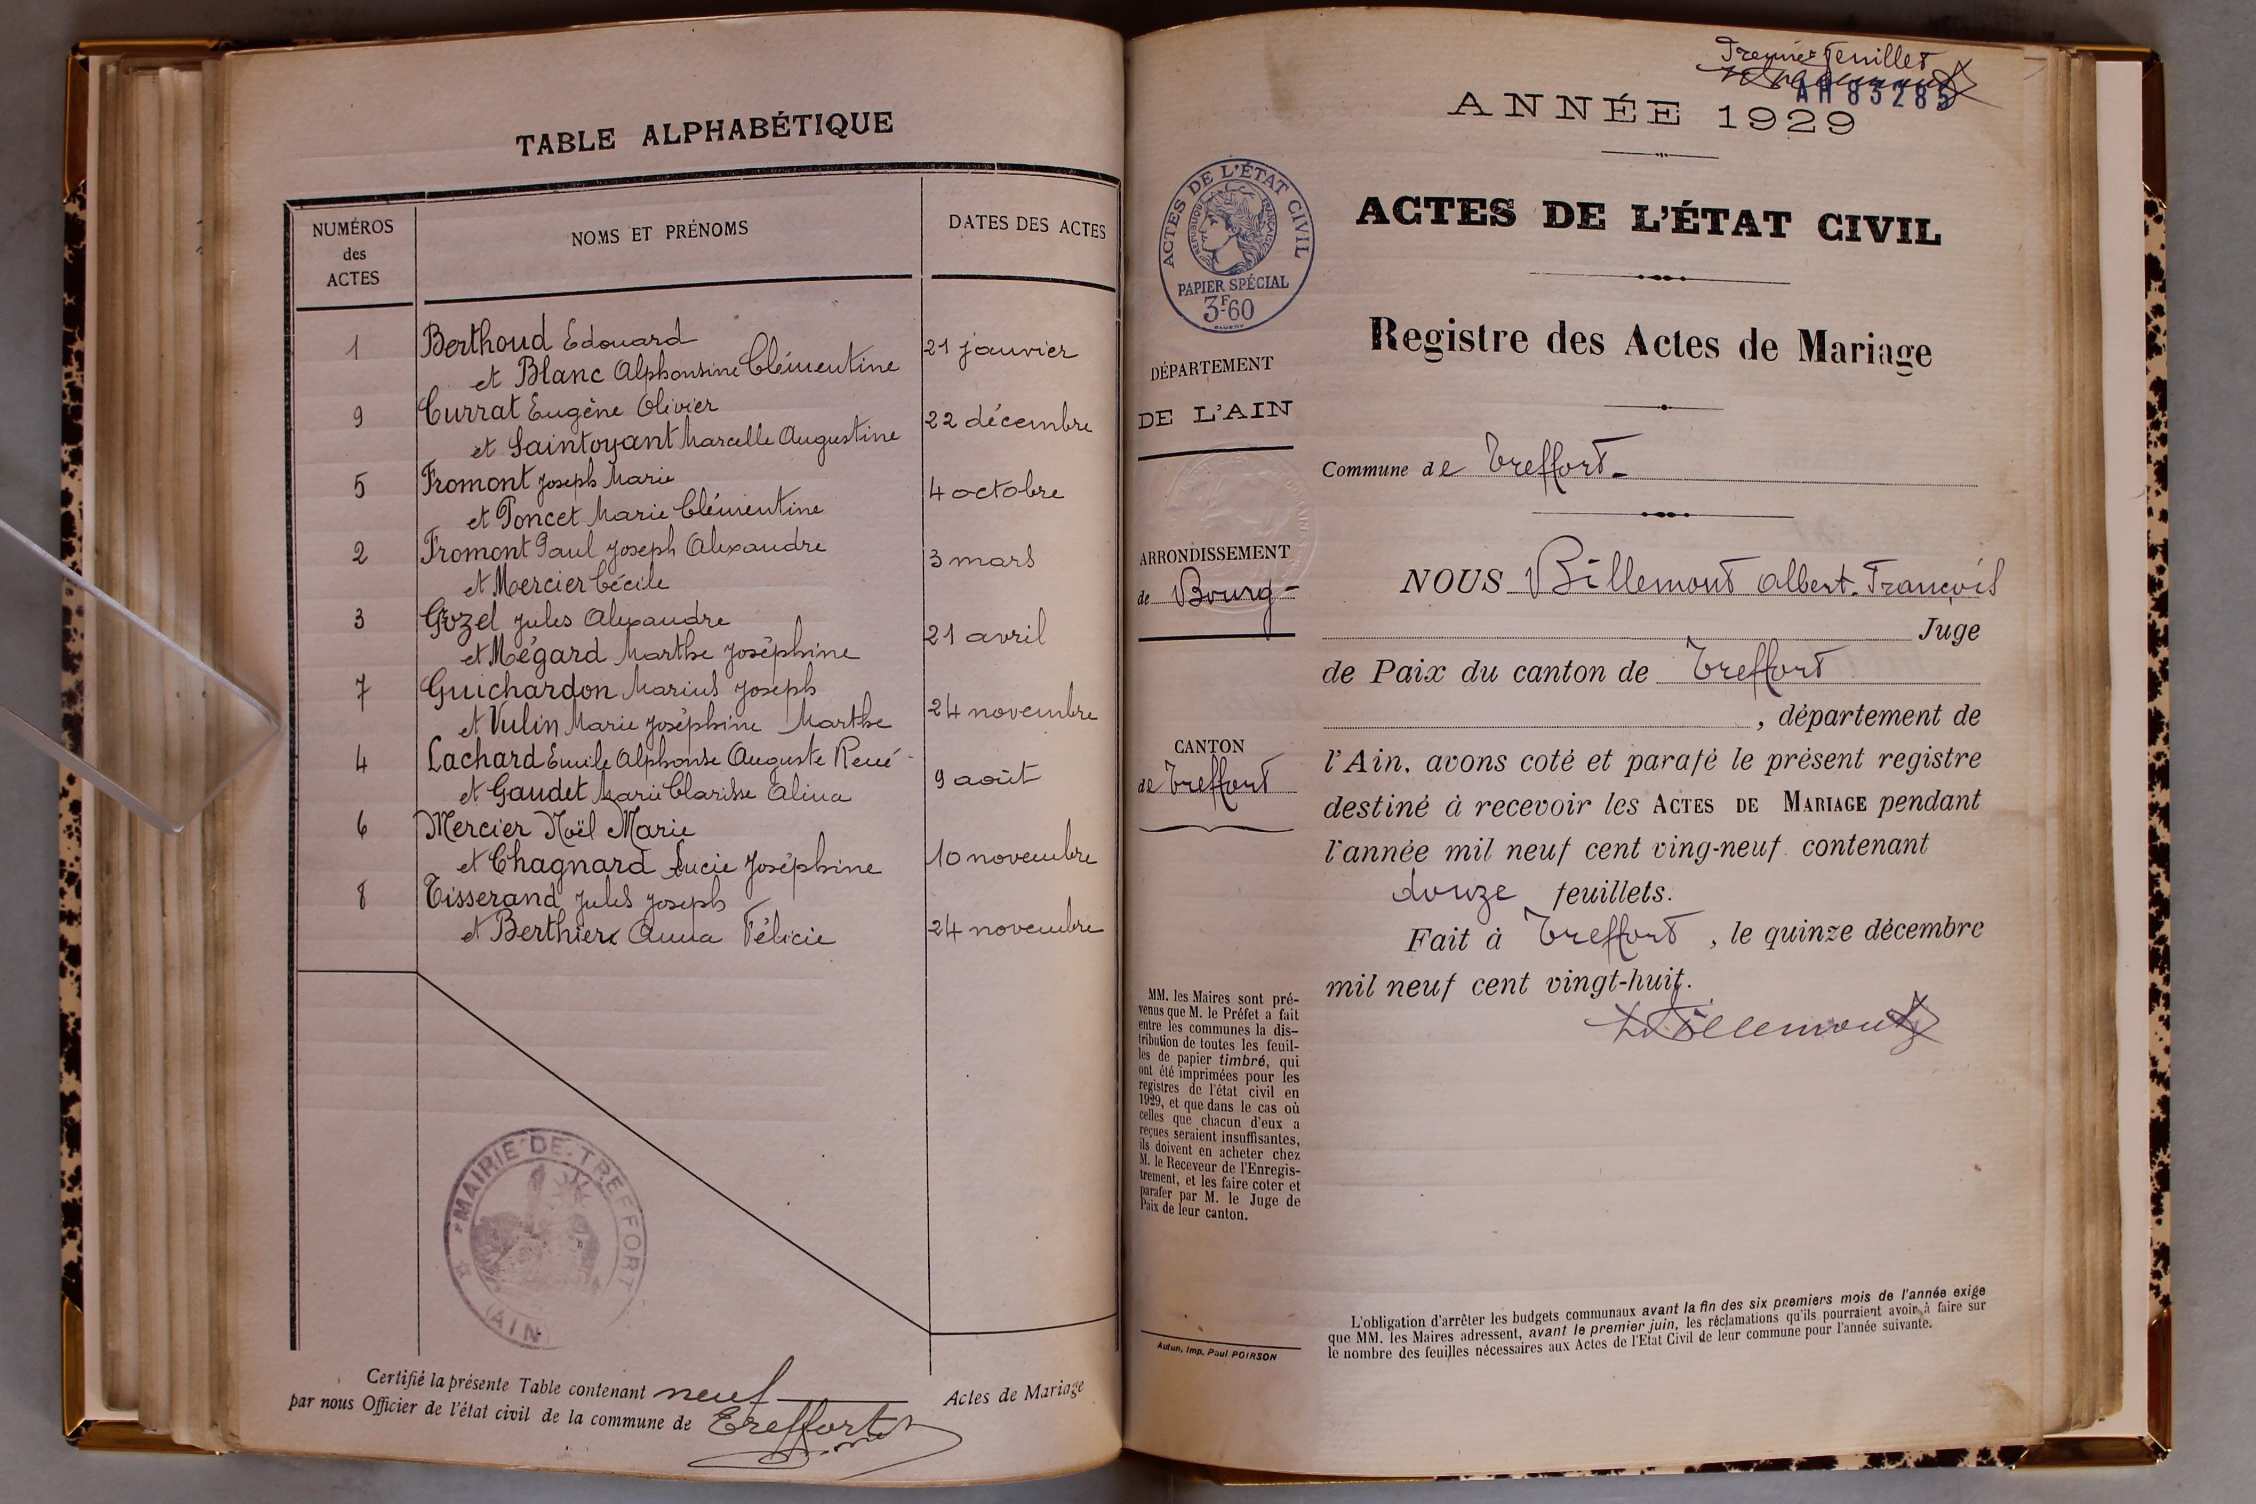 TABLE ALPHABÉTIQUE
NUMÉROS
des
ACTES
NOMS ET PRÉNOMS
DATES DES ACTES
1 Berthoud Edouard
et Blanc Alphonsine Clémentine 21 janvier
9 Currat Eugène Olivier
et Saintoyant Marcelle Augustine 22 décembre
5 Fromont Joseph Marie
et Poncet Marie Clémentine 4 octobre
2 Fromont Paul Joseph Alexandre
et Mercier Cécile 3 mars
3 Gozel Jules Alexandre
et Mégard Marthe Joséphine 21 avril
7 Guichardon Marius Joseph
et Vulin Marie Joséphine Marthe 24 novembre
4 Lachard Emile Alphonse Auguste René
et Gaudet Marie Clarisse Alina 9 août
6 Mercier Noël Marie
et Chagnard Lucie Joséphine 10 novembre
8 Tisserand Jules Joseph
et Berthier Anna Félicie 24 novembre
MAIRIE DE TREFFORT
(AIN)
Certifié la présente Table contenant neuf Actes de Mariage
par nous Officier de l'état civil de la commune de Treffort
Premier feuillet
AH 83285
ANNÉE 1929
ACTES DE L'ÉTAT CIVIL
RÉPUBLIQUE FRANÇAISE
PAPIER SPÉCIAL
3F60
ACTES DE L'ÉTAT CIVIL
Registre des Actes de Mariage
DÉPARTEMENT
DE L'AIN
Commune de Treffort
ARRONDISSEMENT
de Bourg
CANTON
de Treffort
NOUS Billemont Albert-François
Juge
de Paix du canton de Treffort
, département de
l'Ain, avons coté et parafé le présent registre
destiné à recevoir les ACTES DE MARIAGE pendant
l'année mil neuf cent ving-neuf contenant
douze feuillets.
Fait à Treffort, le quinze décembre
mil neuf cent vingt-huit.
MM. les Maires sont pré-
venus que M. le Préfet a fait
entre les communes la dis-
tribution de toutes les feuil-
les de papier timbré, qui
ont été imprimées pour les
registres de l'état civil en
1929, et que dans le cas où
celles que chacun d'eux a
reçues seraient insuffisantes,
ils doivent en acheter chez
M. le Receveur de l'Enregis-
trement, et les faire coter et
parafer par M. le Juge de
Paix de leur canton.
Autun, Imp. Paul POIRSON
L'obligation d'arrêter les budgets communaux avant la fin des six premiers mois de l'année exige
que MM. les Maires adressent, avant le premier juin, les réclamations qu'ils pourraient avoir à faire sur
le nombre des feuilles nécessaires aux Actes de l'Etat Civil de leur commune pour l'année suivante.